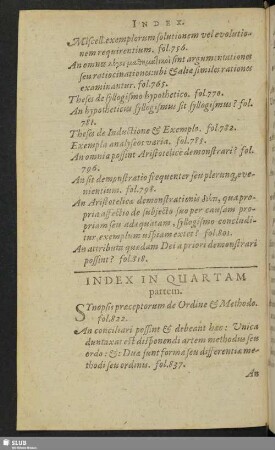 INDEX.
Miscell. exemplorum solutionem vel evolutio-
nem requirentium. fol.756.
An omnes λόγοι μαθηματικοὶ sint argumentationes
seu ratiocinationes: ubi & aliæ similes rationes
examinantur. fol.765.
Theses de syllogismo hypothetico. fol.770.
An hypotheticus syllogismus sit syllogismus? fol.
781.
Theses de Inductione & Exemplo. fol.782.
Exempla analyseωn varia. fol.785.
An omnia possint Aristotelicè demonstrari? fol.
796.
An sit demonstratio frequenter seu plerunq; e-
venientium. fol.798.
An Aristotelicæ demonstrationis quâ pro-
pria affectio de subjecto suo per causam pro-
priam seu adæquatam, syllogismo concludi-
tur, exemplum uspiam extet? fol.801.
An attributa quædam Dei à priori demonstrari
possint? fol.818.
INDEX IN QUARTAM
partem.
SYnopsis præceptorum de Ordine & Methodo.
fol.822.
An conciliari possint & debeant hæc: Unica
duntaxat est disponendi artem methodus seu
ordo: &: Duæ sunt formæ seu differentiæ me-
thodi seu ordinis. fol.837.
An
SLUB